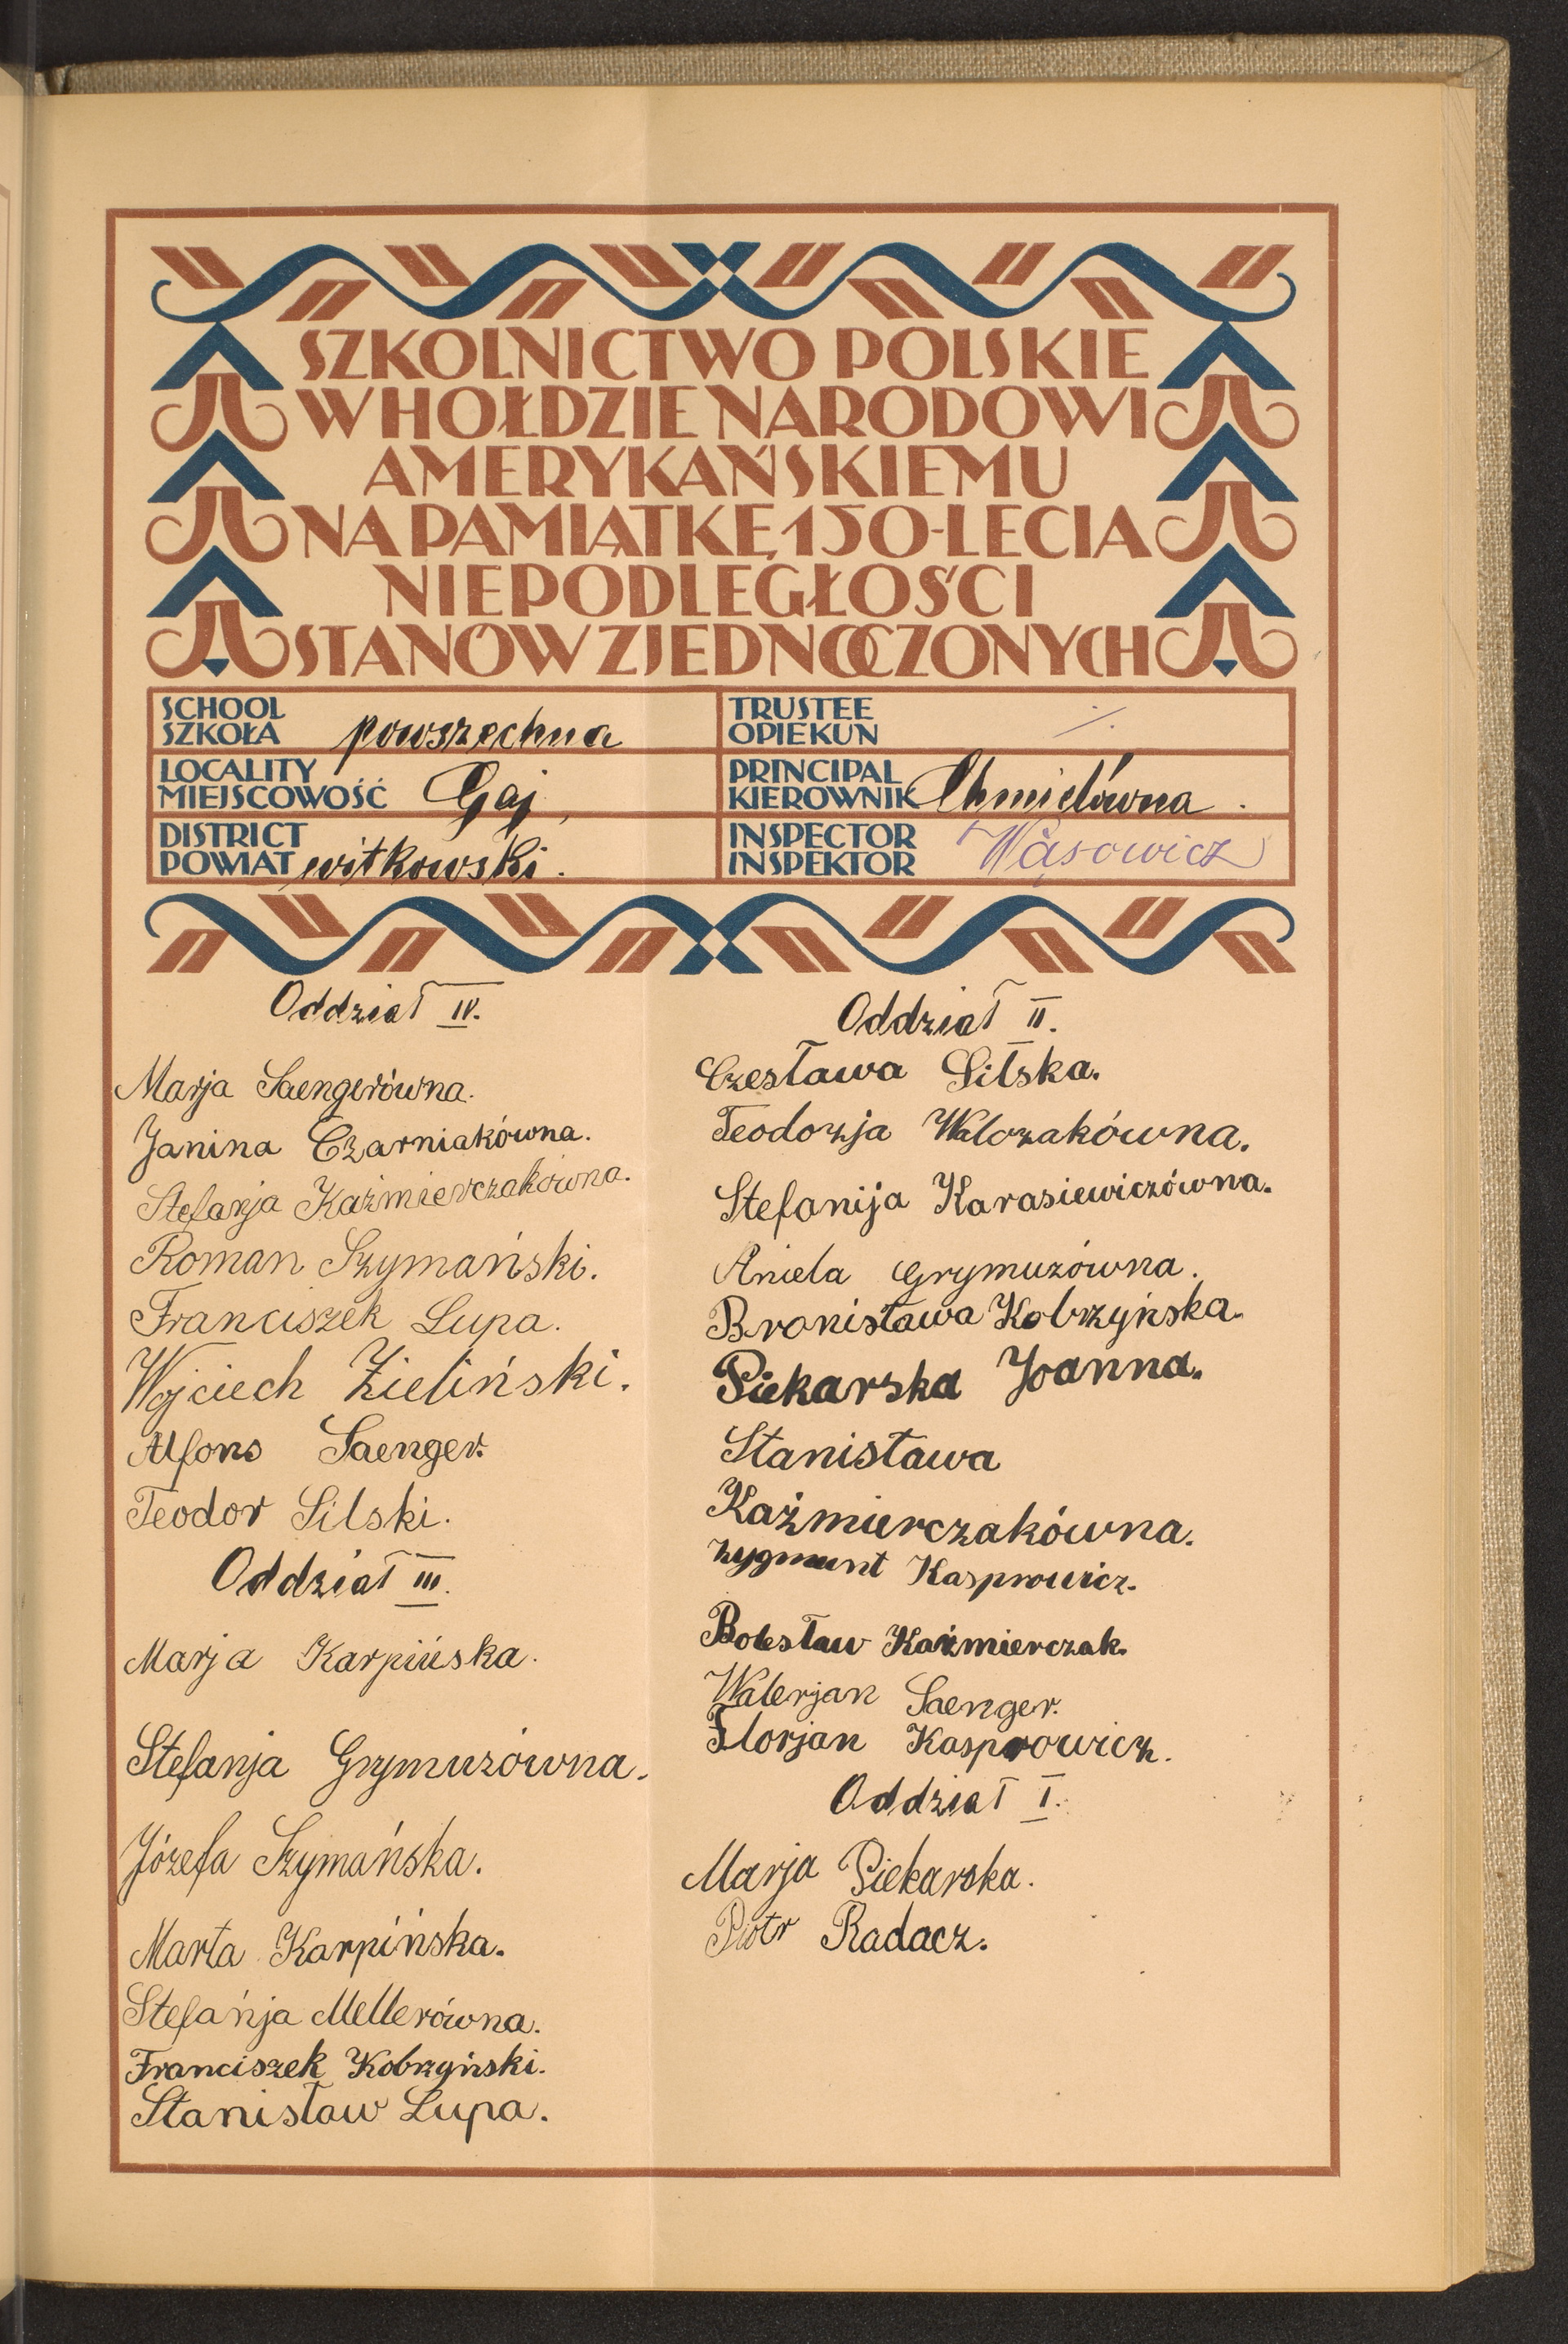 SZKOLNICTWO POLSKIE
W HOŁDZIE NARODOWI
AMERYKAŃSKIEMU
NA PAMIĄTKĘ 150-LECIA
NIEPODLEGŁOŚCI
STANÓW ZJEDNOCZONYCH
SCHOOL
SZKOŁA powszechna
TRUSTEE
OPIEKUN ·/·
LOCALITY
MIEJSCOWOŚĆ Gaj
PRINCIPAL
KIEROWNIK Chmielówna.
DISTRICT
POWIAT witkowski.
INSPECTOR
INSPEKTOR Wąsowicz
Oddział IV.
Marja Saengerówna.
Janina Czarniakówna.
Stefanja Kaźmierczakówna.
Roman Szymański.
Franciszek Lupa.
Wojciech Zieliński.
Alfons Saenger.
Teodor Silski.
Oddział III.
Marja Karpińska.
Stefanja Grymuzówna.
Józefa Szymańska.
Marta Karpińska.
Stefańja Mellerówna.
Franciszek Kobrzyński.
Stanisław Lupa.
Oddział II.
Czesława Silska.
Teodozja Walczakówna.
Stefanija Karasiewiczówna.
Aniela Grymuzówna.
Bronisława Kobrzyńska.
Piekarska Joanna.
Stanisława
Kaźmierczakówna.
Zygmunt Kasprowicz.
Bolesław Kaźmierczak.
Walerjan Saenger.
Florjan Kasprowicz.
Oddział I.
Marja Piekarska.
Piotr Radacz.